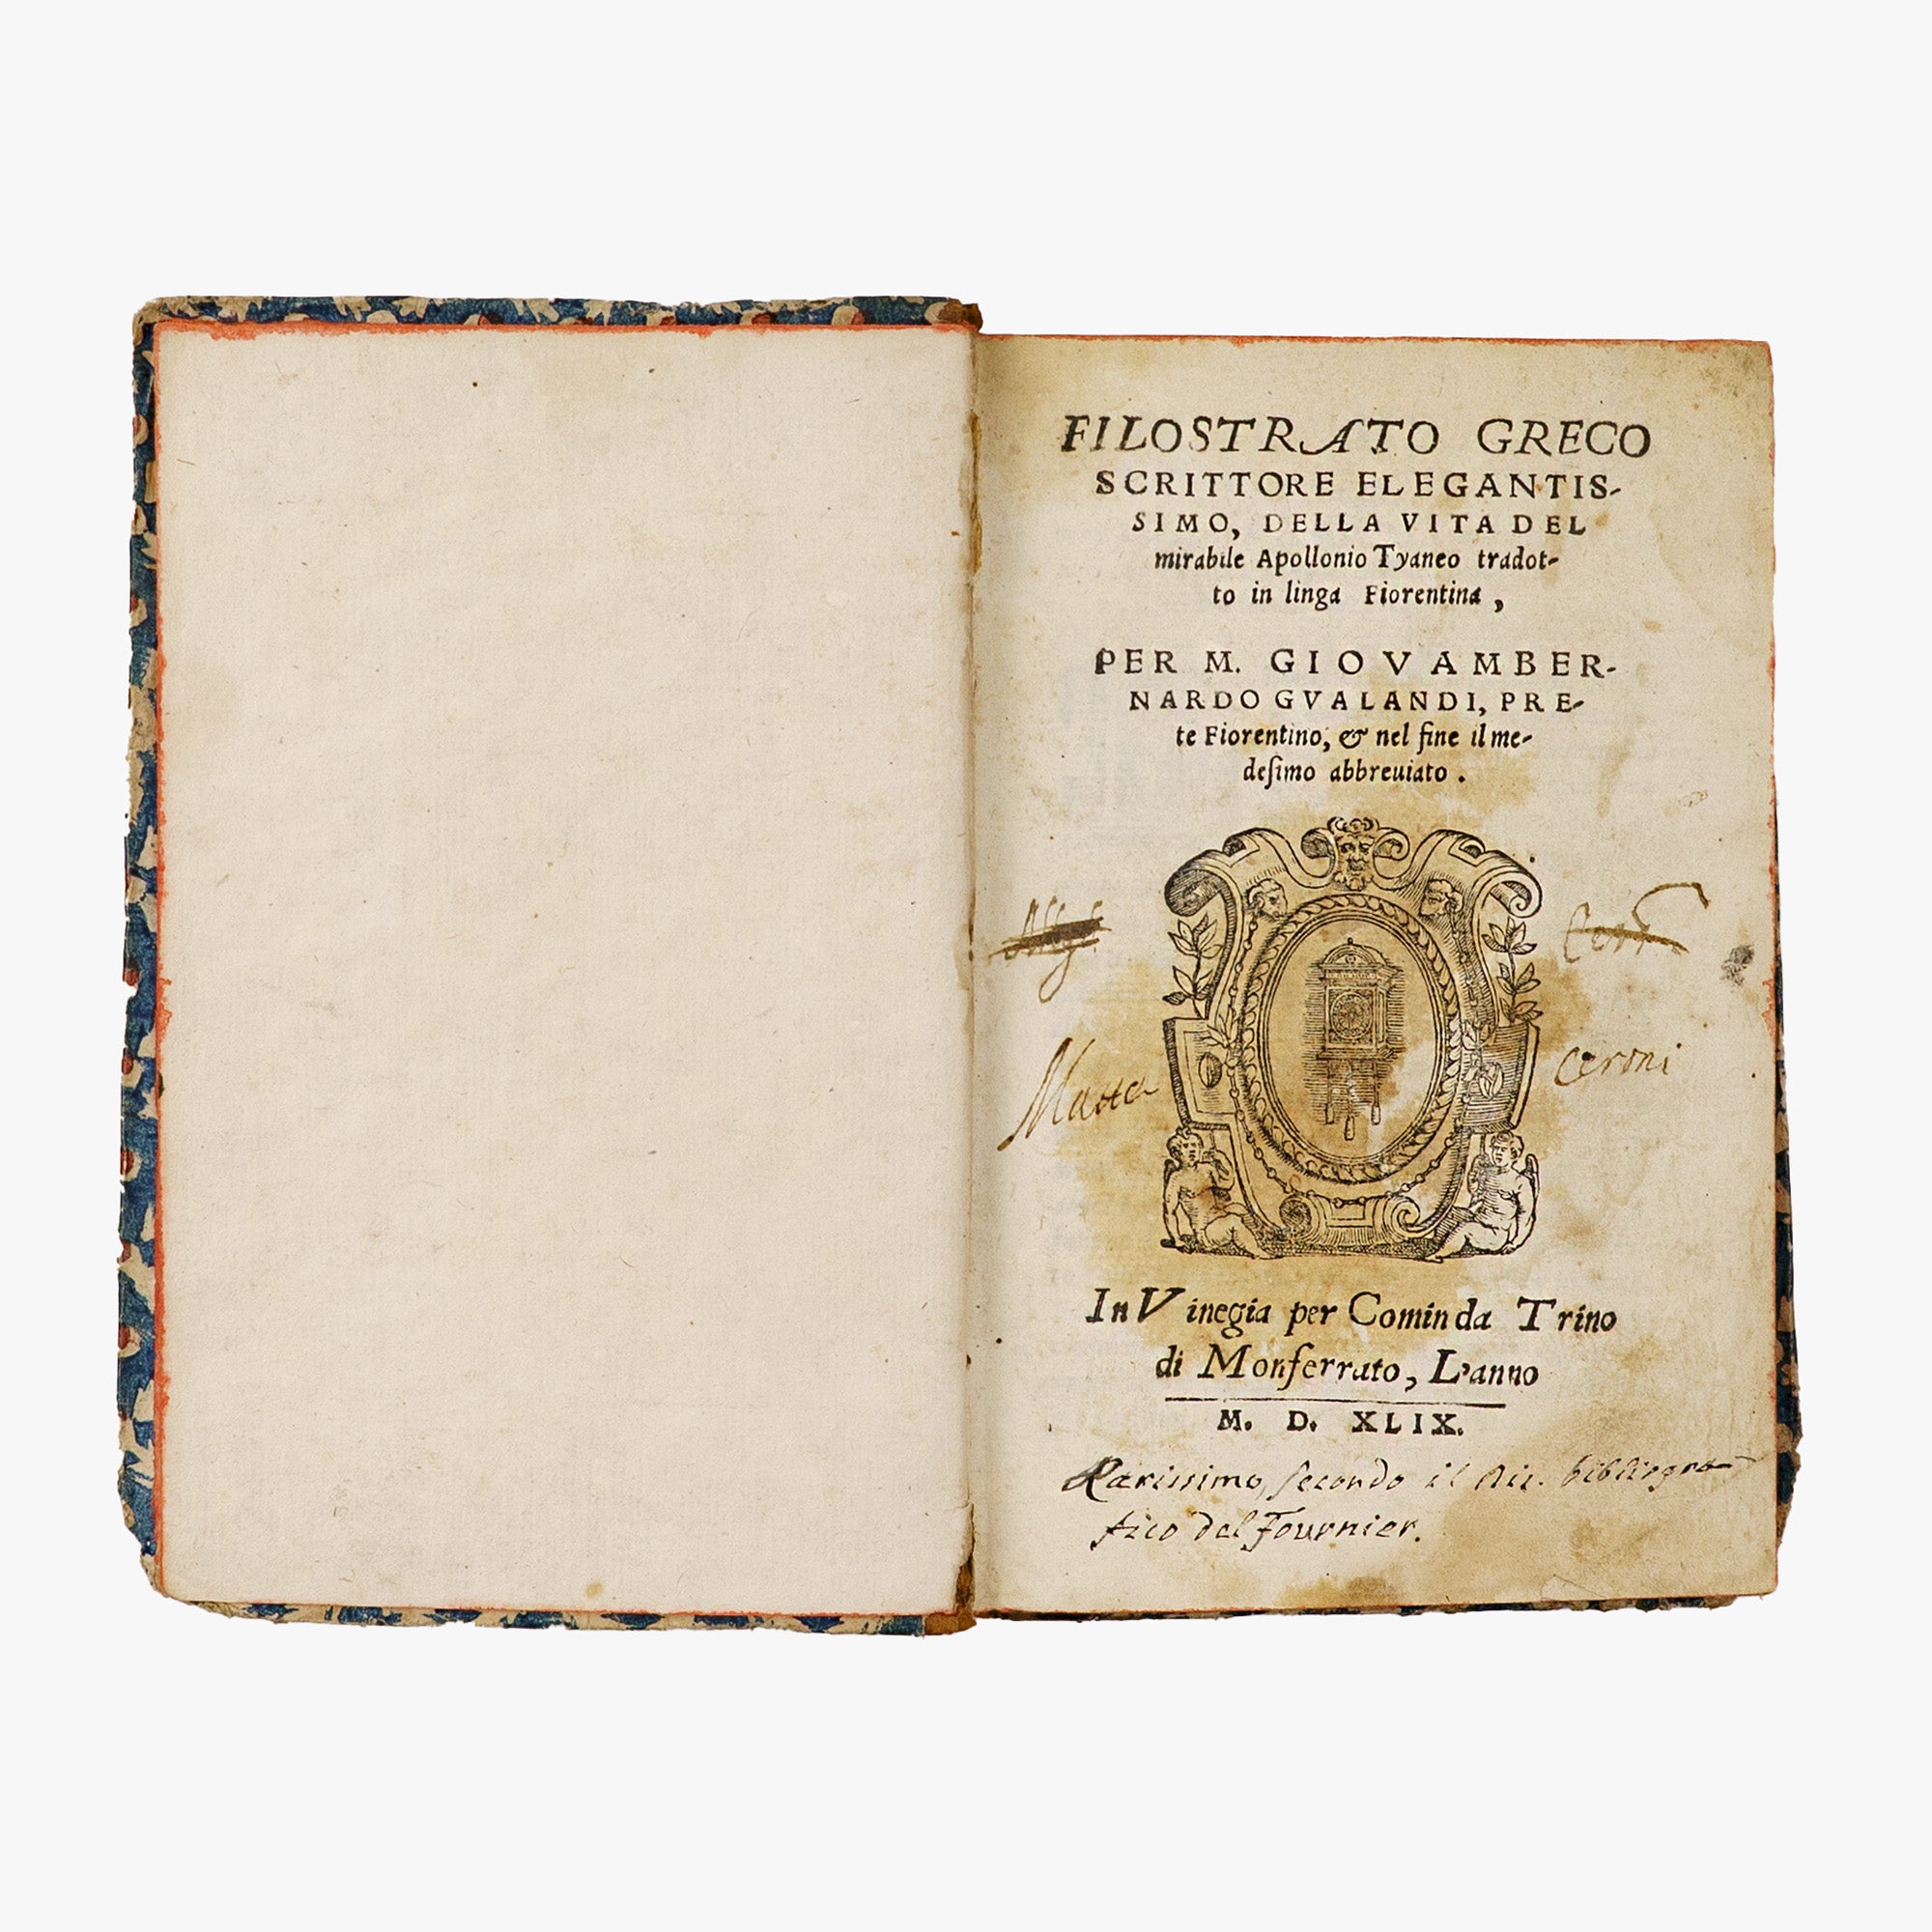 FILOSTRATO GRECO
SCRITTORE ELEGANTIS-
SIMO, DELLA VITA DEL
mirabile Apollonio Tyaneo tradot-
to in linga Fiorentina,
PER M. GIOVAMBER-
NARDO GVALANDI, PRE-
te Fiorentino, & nel fine il me-
deſimo abbreuiato.
ceroni
In Vinegia per Comin da Trino
di Monferrato, L'anno
M. D. XLIX.
Rarissimo, secondo il Diz. bibliogra-
fico del Fournier.